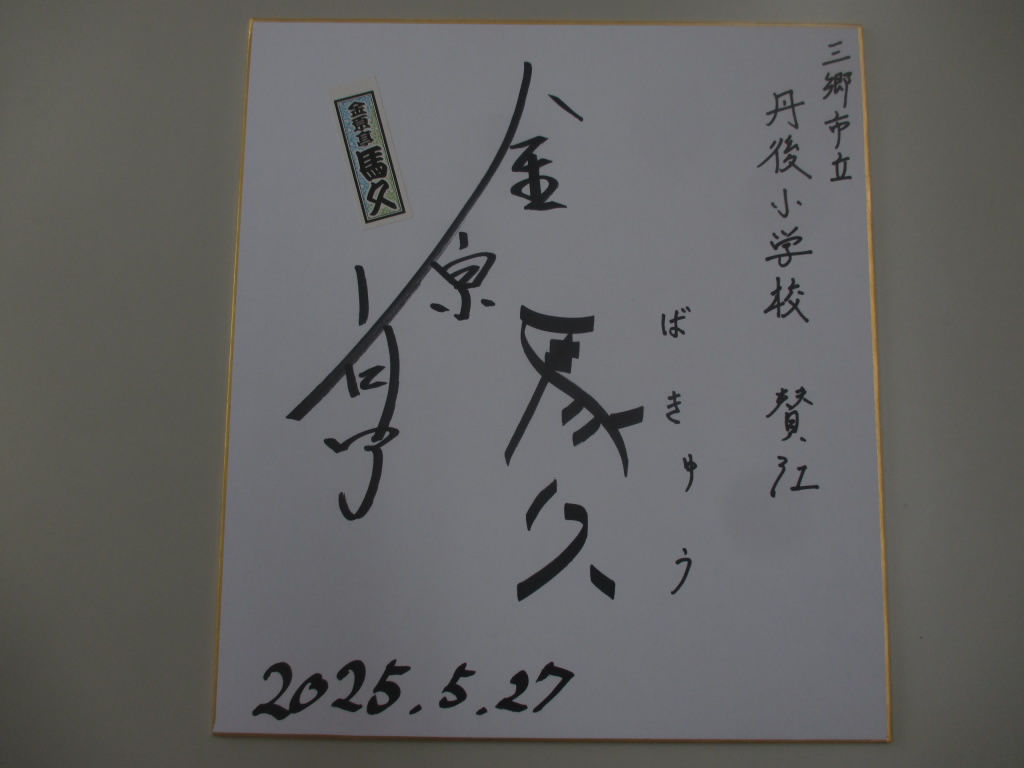 三郷市立
丹後小学校 賛江
ばきゅう
金原亭
馬久
金原亭 馬久
2025.5.27